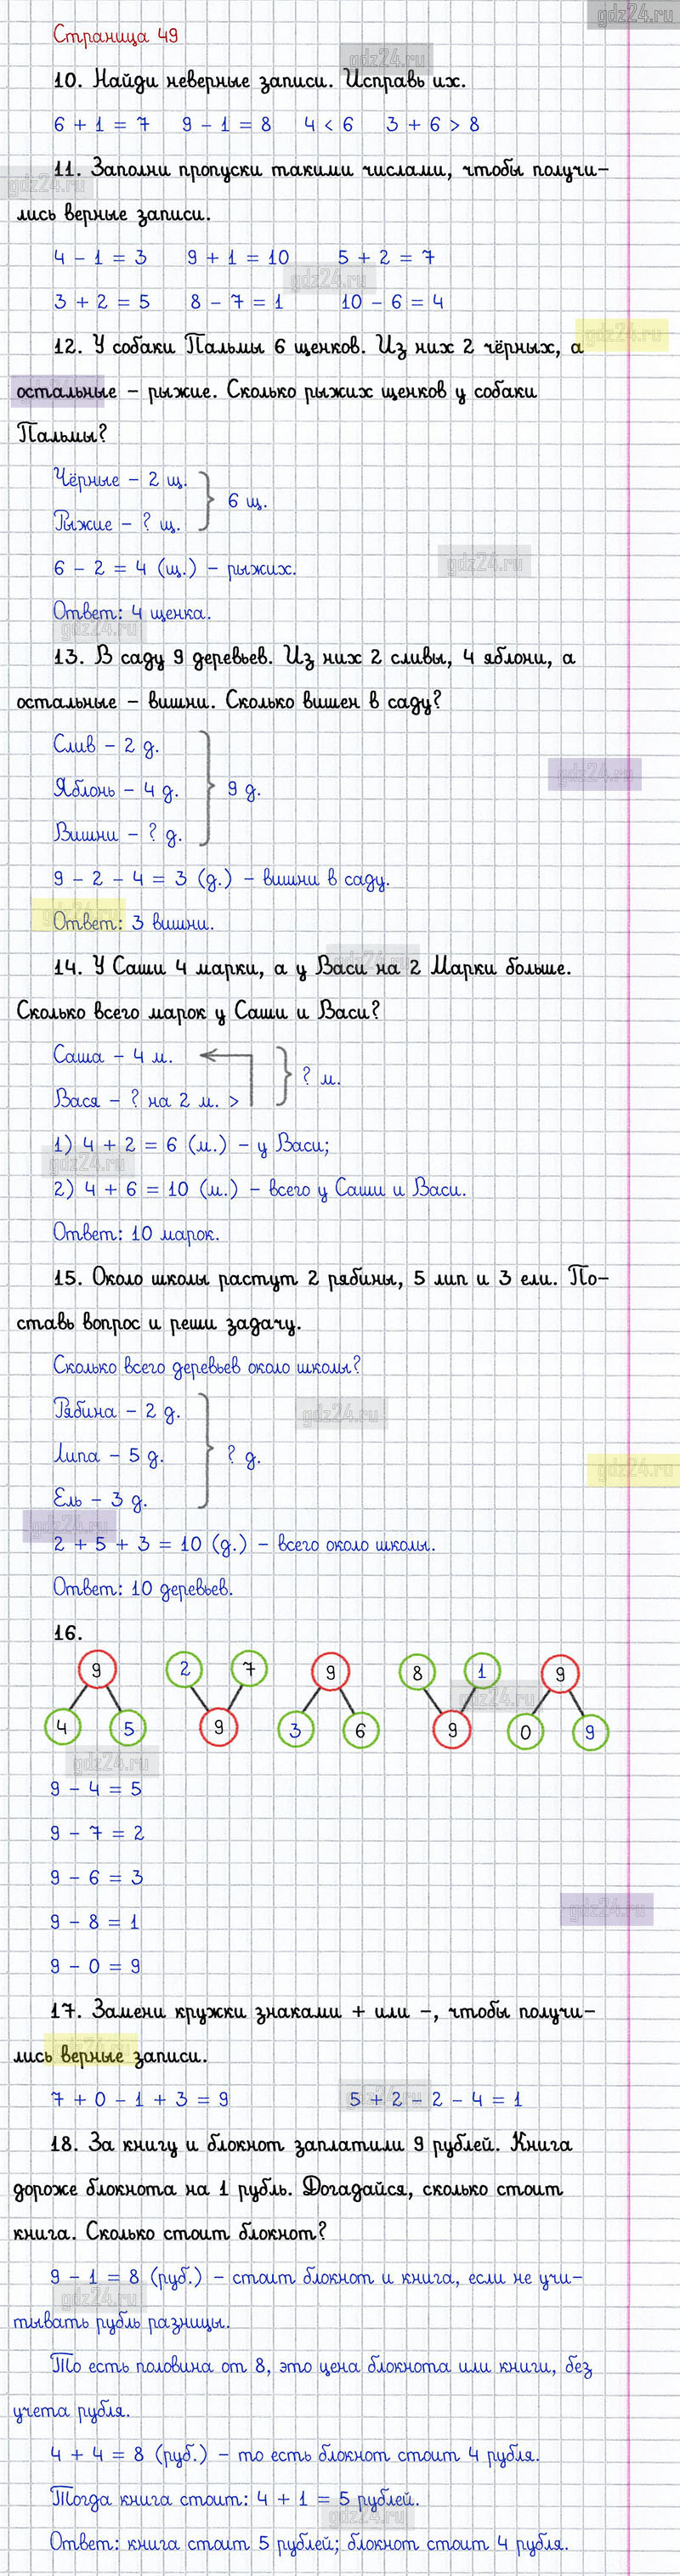 gdz24.ru
Страница 49
gdz24.ru
10. Найди неверные записи. Исправь их.
6 + 1 = 7 9 - 1 = 8 4 < 6 3 + 6 > 8
11. Заполни пропуски такими числами, чтобы получи-
gdz24.ru
лись верные записи.
4 - 1 = 3 9 + 1 = 10 5 + 2 = 7
gdz24.ru
3 + 2 = 5 8 - 7 = 1 10 - 6 = 4
gdz24.ru
12. У собаки Пальмы 6 щенков. Из них 2 чёрных, а
остальные - рыжие. Сколько рыжих щенков у собаки
Пальмы?
Чёрные - 2 щ.
6 щ.
Рыжие - ? щ.
gdz24.ru
6 - 2 = 4 (щ.) - рыжих.
Ответ: 4 щенка.
gdz24.ru
13. В саду 9 деревьев. Из них 2 сливы, 4 яблони, а
остальные - вишни. Сколько вишен в саду?
Слив - 2 д.
gdz24.ru
Яблонь - 4 д. 9 д.
Вишни - ? д.
9 - 2 - 4 = 3 (д.) - вишни в саду.
Ответ: 3 вишни.
14. У Саши 4 марки, а у Васи на 2 Марки больше.
Сколько всего марок у Саши и Васи?
Саша - 4 м.
? м.
Вася - ? на 2 м. >
1) 4 + 2 = 6 (м.) - у Васи;
gdz24.ru
2) 4 + 6 = 10 (м.) - всего у Саши и Васи.
Ответ: 10 марок.
15. Около школы растут 2 рябины, 5 лип и 3 ели. По-
ставь вопрос и реши задачу.
Сколько всего деревьев около школы?
Рябина - 2 д.
gdz24.ru
Липа - 5 д. ? д.
gdz24.ru
Ель - 3 д.
gdz24.ru
2 + 5 + 3 = 10 (д.) - всего около школы.
Ответ: 10 деревьев.
16.
9 2 7 9 8 1 9
gdz24.ru
4 5 9 3 6 9 0 9
gdz24.ru
9 - 4 = 5
9 - 7 = 2
9 - 6 = 3
gdz24.ru
9 - 8 = 1
9 - 0 = 9
17. Замени кружки знаками + или -, чтобы получи-
лись верные записи.
gdz24.ru
7 + 0 - 1 + 3 = 9 5 + 2 - 2 - 4 = 1
18. За книгу и блокнот заплатили 9 рублей. Книга
дороже блокнота на 1 рубль. Догадайся, сколько стоит
книга. Сколько стоит блокнот?
9 - 1 = 8 (руб.) - стоит блокнот и книга, если не учи-
gdz24.ru
тывать рубль разницы.
То есть половина от 8, это цена блокнота или книги, без
учета рубля.
4 + 4 = 8 (руб.) - то есть блокнот стоит 4 рубля.
Тогда книга стоит: 4 + 1 = 5 рублей.
gdz24.ru
Ответ: книга стоит 5 рублей; блокнот стоит 4 рубля.